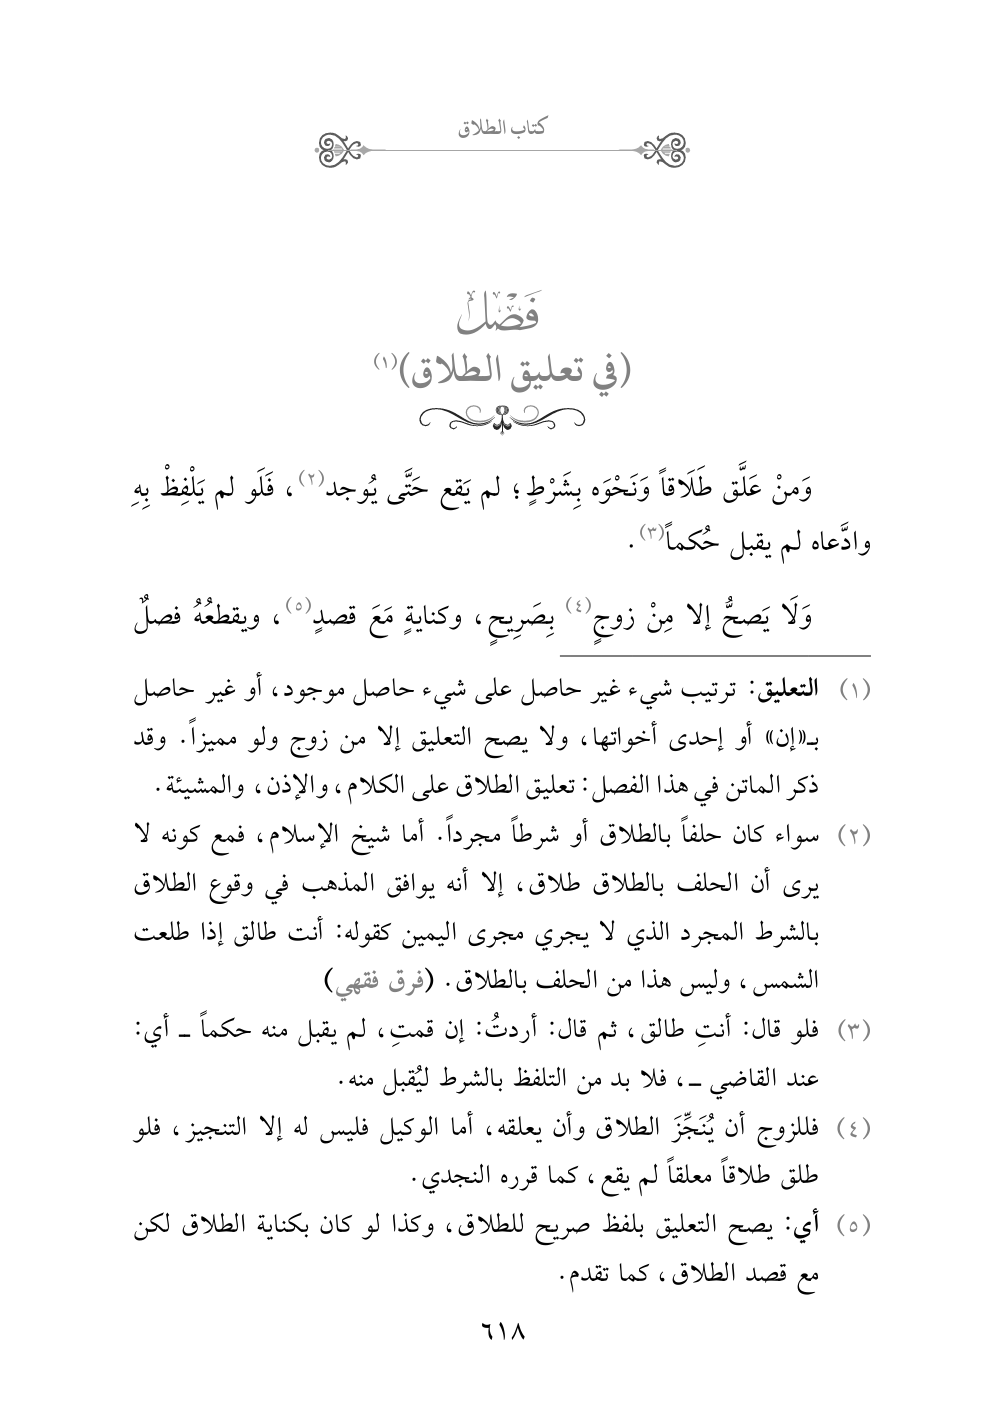 كتاب الطلاق
فَصْلٌ
(في تعليق الطلاق)(١)
وَمنْ عَلَّق طَلَاقاً وَنَحْوَه بِشَرْطٍ؛ لم يَقع حَتَّى يُوجد(٢)، فَلَو لم يَلْفِظْ بِهِ
وادَّعاه لم يقبل حُكماً(٣).
وَلَا يَصحُّ إلا مِنْ زوجٍ(٤) بِصَرِيحٍ، وكنايةٍ مَعَ قصدٍ(٥)، ويقطعُهُ فصلٌ
(١) التعليق: ترتيب شيء غير حاصل على شيء حاصل موجود، أو غير حاصل
بـ«إن» أو إحدى أخواتها، ولا يصح التعليق إلا من زوج ولو مميزاً. وقد
ذكر الماتن في هذا الفصل: تعليق الطلاق على الكلام، والإذن، والمشيئة.
(٢) سواء كان حلفاً بالطلاق أو شرطاً مجرداً. أما شيخ الإسلام، فمع كونه لا
يرى أن الحلف بالطلاق طلاق، إلا أنه يوافق المذهب في وقوع الطلاق
بالشرط المجرد الذي لا يجري مجرى اليمين كقوله: أنت طالق إذا طلعت
الشمس، وليس هذا من الحلف بالطلاق. (فرق فقهي)
(٣) فلو قال: أنتِ طالق، ثم قال: أردتُ: إن قمتِ، لم يقبل منه حكماً ـ أي:
عند القاضي ـ، فلا بد من التلفظ بالشرط ليُقبل منه.
(٤) فللزوج أن يُنَجِّزَ الطلاق وأن يعلقه، أما الوكيل فليس له إلا التنجيز، فلو
طلق طلاقاً معلقاً لم يقع، كما قرره النجدي.
(٥) أي: يصح التعليق بلفظ صريح للطلاق، وكذا لو كان بكناية الطلاق لكن
مع قصد الطلاق، كما تقدم.
٦١٨